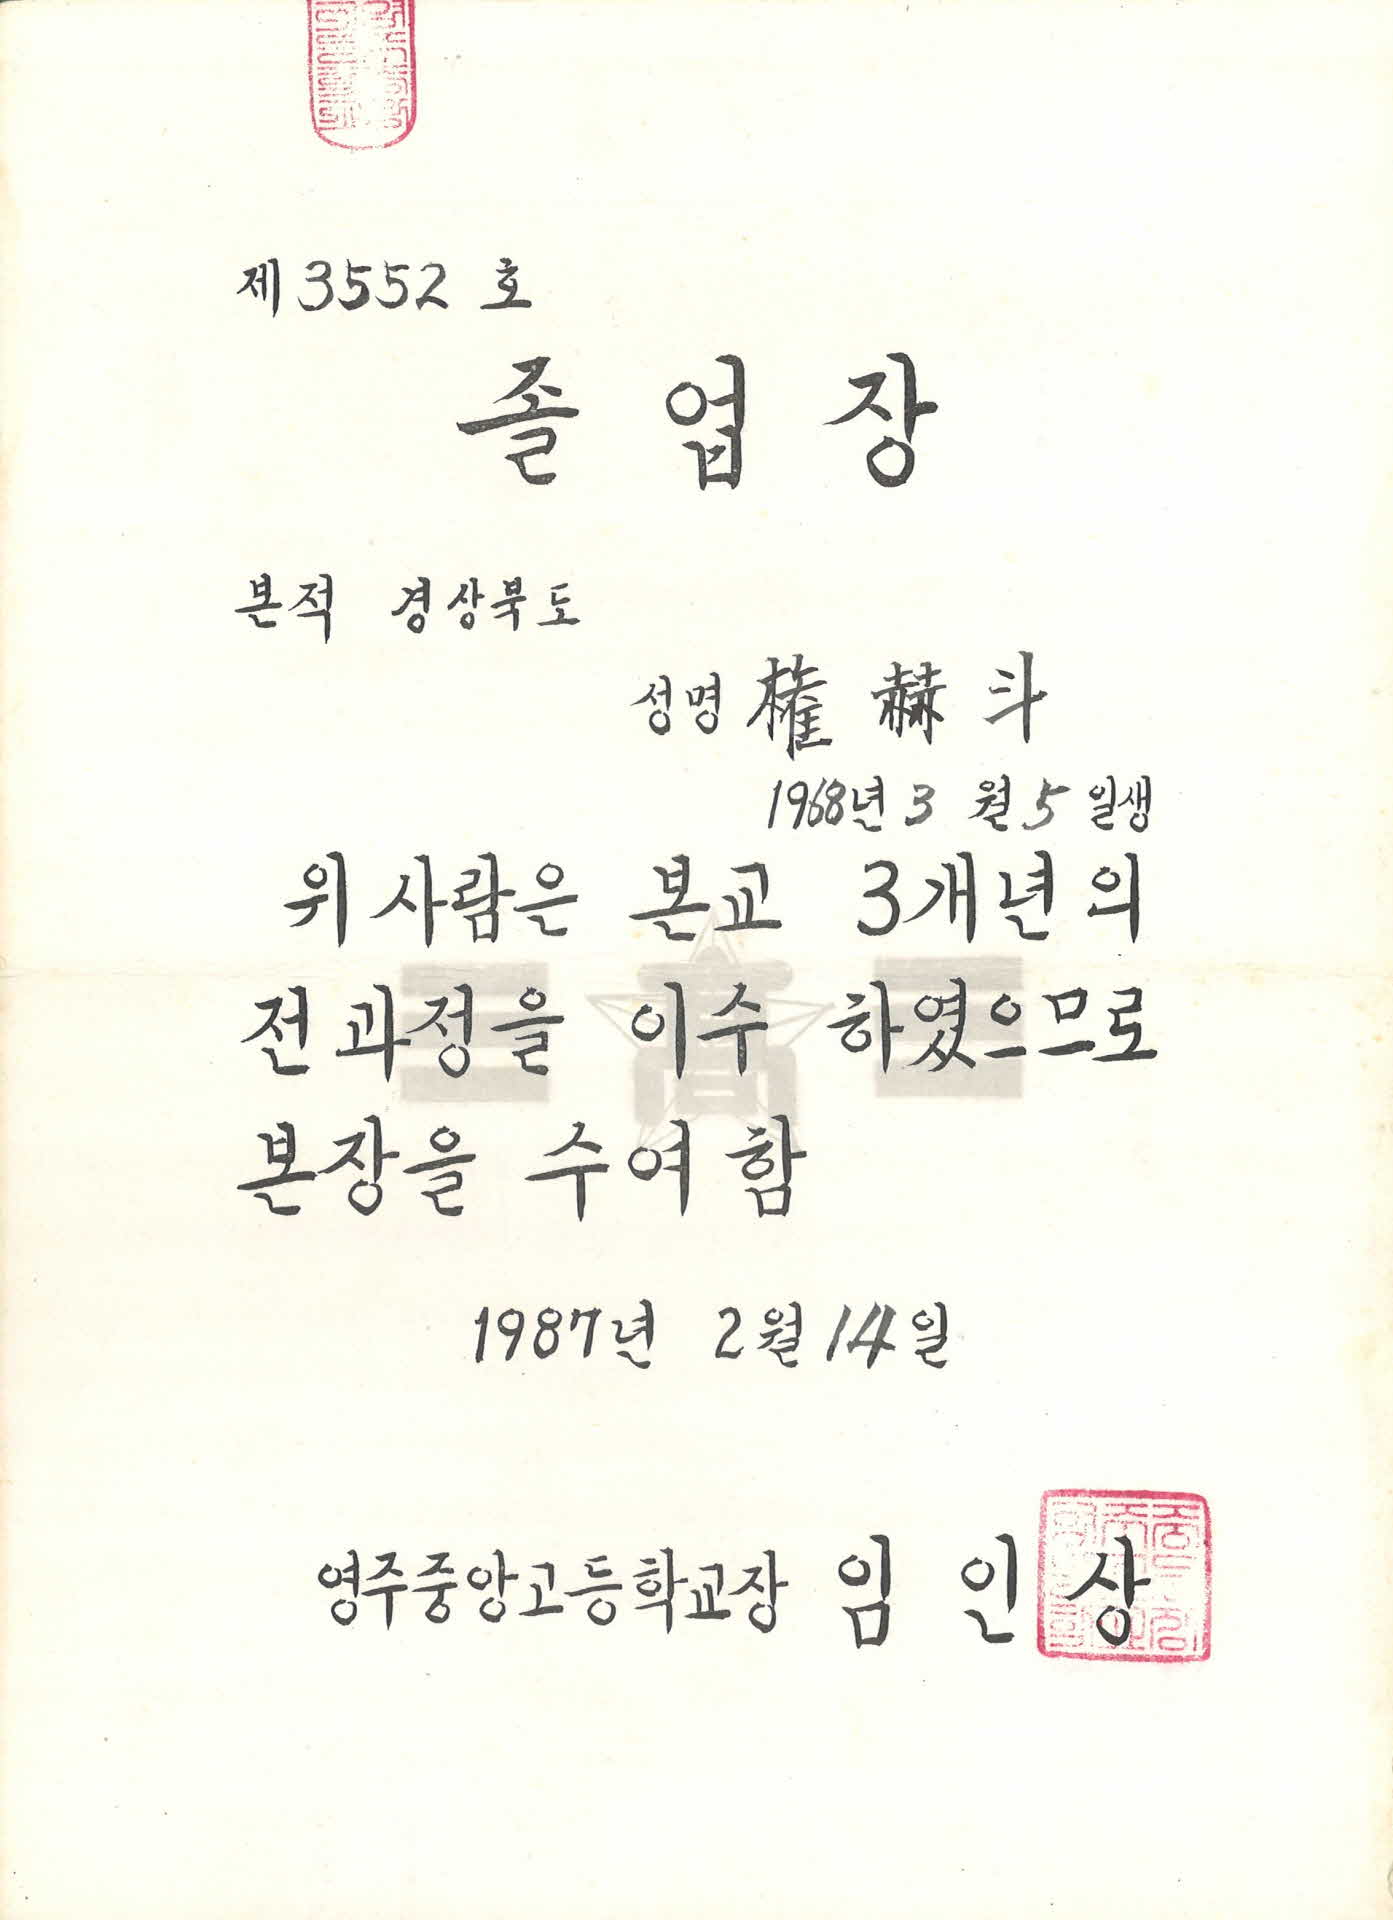 제 3552 호
졸업장
본적 경상북도
성명 權赫斗
1968년 3월 5일생
위 사람은 본교 3개년의
전과정을 이수 하였으므로
본장을 수여함
1987년 2월 14일
영주중앙고등학교장 임인상